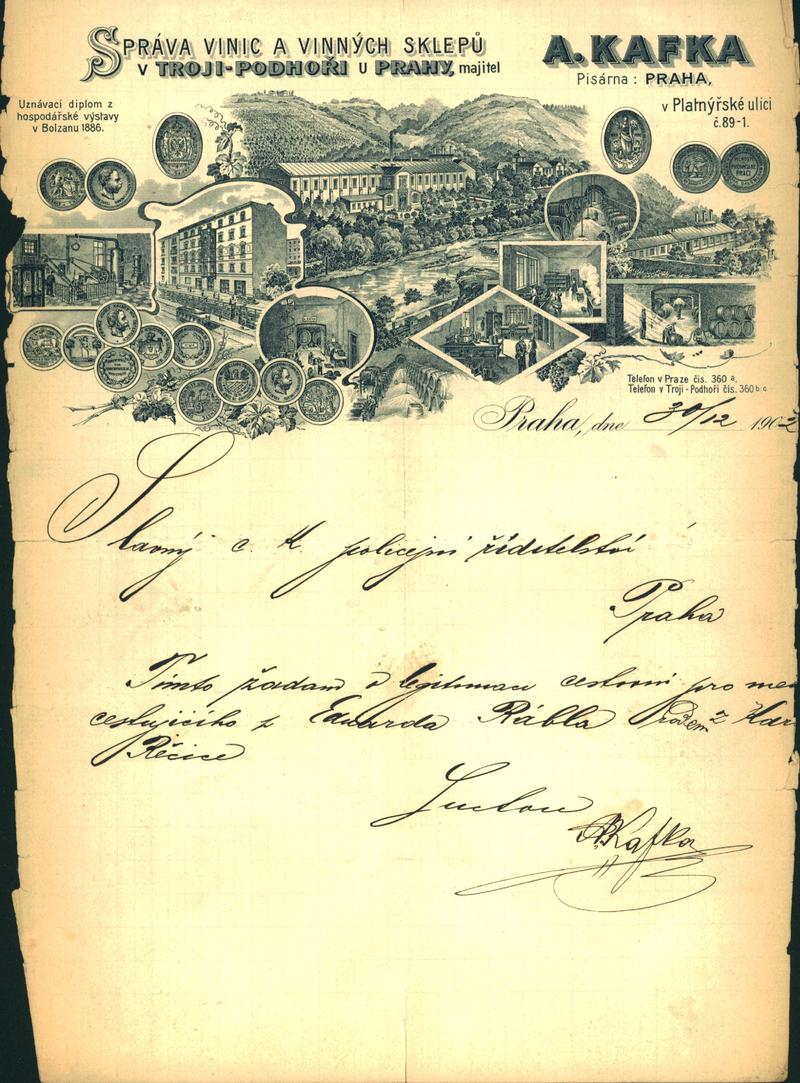 SPRÁVA VINIC A VINNÝCH SKLEPŮ
V TROJI-PODHOŘI U PRAHY, majitel
A. KAFKA
Pisárna: PRAHA,
v Platnýřské ulici
č. 89-1.
Uznávací diplom z
hospodářské výstavy
v Bolzanu 1886.
Telefon v Praze čís. 360 a.
Telefon v Troji-Podhoři čís. 360 b. c.
Praha, dne 30/12 1902
Slavný c. k. policejní ředitelství
Praha
Tímto žádám o legitimaci cestovní pro
cestujícího p. Eduarda Rábla rodem z
Rěčice
S úctou
AKafka